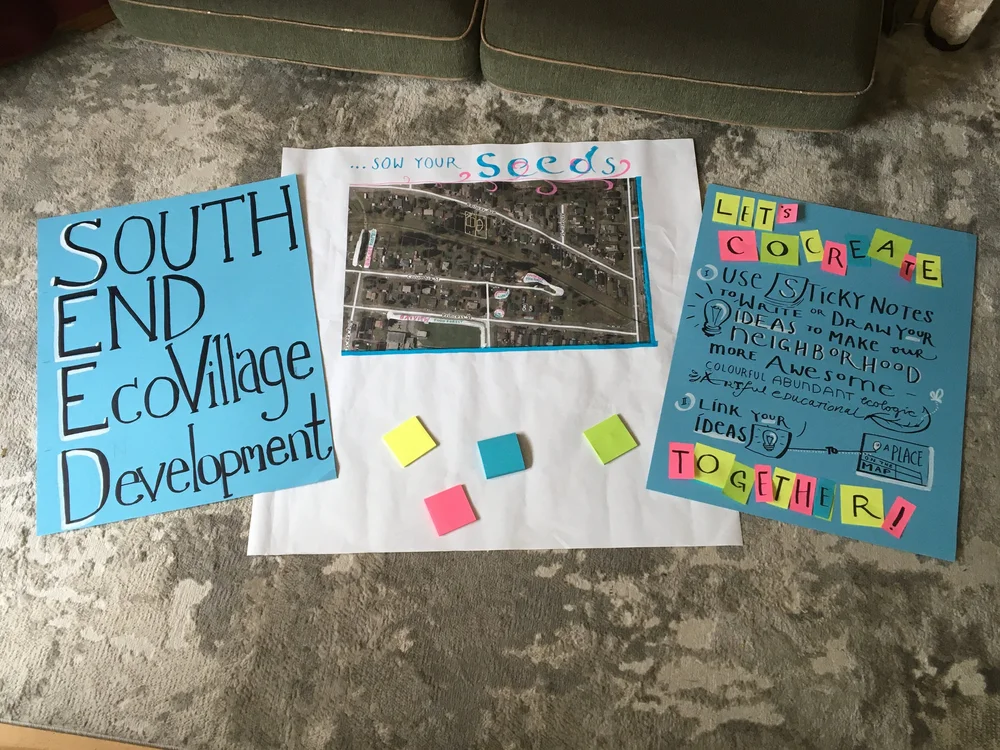 SOUTH
END
EcoVillage
Development
...SOW YOUR Seeds
LET'S
COCREATE
1 USE STICKY NOTES
TO WRITE OR DRAW YOUR
IDEAS TO MAKE OUR
NEIGHBORHOOD
MORE AWESOME -
COLOURFUL ABUNDANT ecologic
Artful educational
LINK YOUR
IDEAS TO A PLACE
ON THE
MAP
TOGETHER!